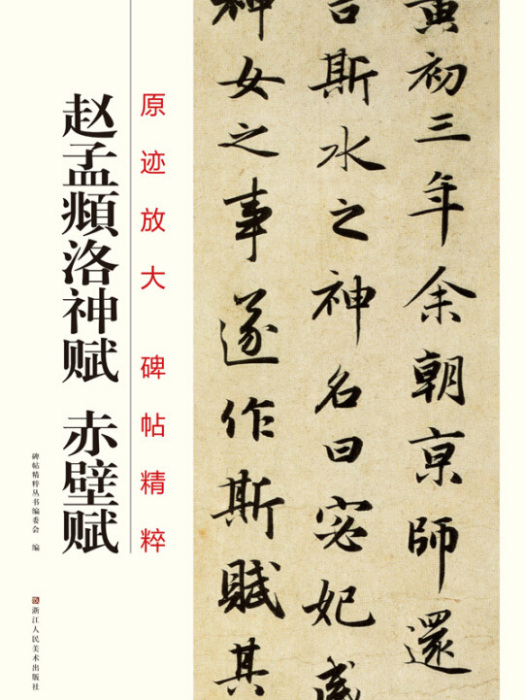 原迹放大 碑帖精粹
赵孟頫洛神赋 赤壁赋
碑帖精粹丛书编委会 编
浙江人民美术出版社
黄初三年余朝京师还
言斯水之神名曰宓妃感
神女之事遂作斯赋其